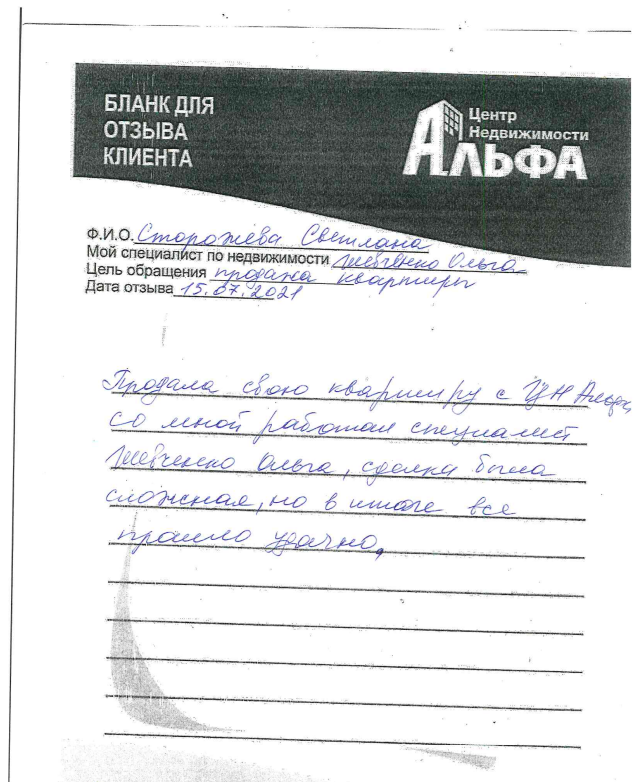 БЛАНК ДЛЯ
ОТЗЫВА
КЛИЕНТА
Центр
Недвижимости
АЛЬФА
Ф.И.О. Сторожева Светлана
Мой специалист по недвижимости Шевченко Ольга
Цель обращения продажа квартиры
Дата отзыва 15.07.2021
Продала свою квартиру с ЦН Альфа
со мной работал специалист
Шевченко Ольга, сделка была
сложная, но в итоге все
прошло удачно.